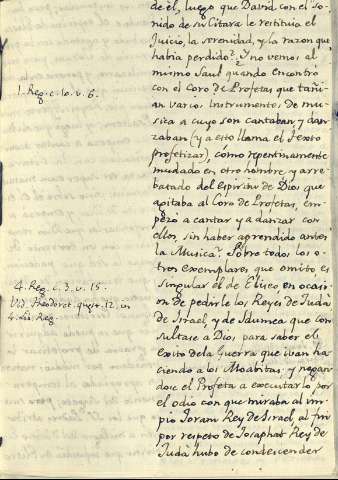 de él, luego que David con el so-
nido de su Citara le restituia el
Juicio, la serenidad, y la razon que
habia perdido? Y no vemos al
mismo Saul quando encontró
1. Reg. c. 10. v. 6.
con el Coro de Profetas que tañi-
an varios instrumentos de mu-
sica a cuyo son cantaban y dan-
zaban (y a esto llama el Texto
profetizar), cómo repentinamente
mudado en otro hombre, y arre-
batado del Espiritu de Dios que
agitaba al Coro de Profetas, em-
pezó a cantar y a danzar con
ellos, sin haber aprendido antes
la Musica? Sobre todos los o-
tros exemplares que omito, es
4. Reg. c. 3. v. 15.
singular el de Eliseo, en ocasi-
Vid. Theodoret. quæst. 12. in
on de pedirle los Reyes de Judá
4. Lib. Reg.
de Israel, y de Idumea que con-
sultase a Dios para saber el
exito de la Guerra que iban ha-
ciendo a los Moabitas: y negan-
dose el Profeta a executarlo por
el odio con que miraba al im-
pio Joram Rey de Israel, al fin
por respeto de Josaphat Rey de
Judá hubo de condescender